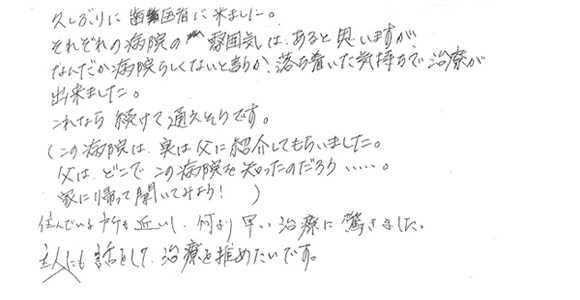 久しぶりに歯医者に来ました。
それぞれの病院の雰囲気は、あると思いますが、
なんだか病院らしくないと言うか、落ち着いた気持ちで治療が
出来ました。
これなら続けて通えそうです。
(この病院は、実は父に紹介してもらいました。
父は、どこでこの病院を知ったのだろう……。
家に帰って聞いてみよう! )
住んでいる所も近いし、何より早い治療に驚きました。
主人にも話をして、治療を推めたいです。